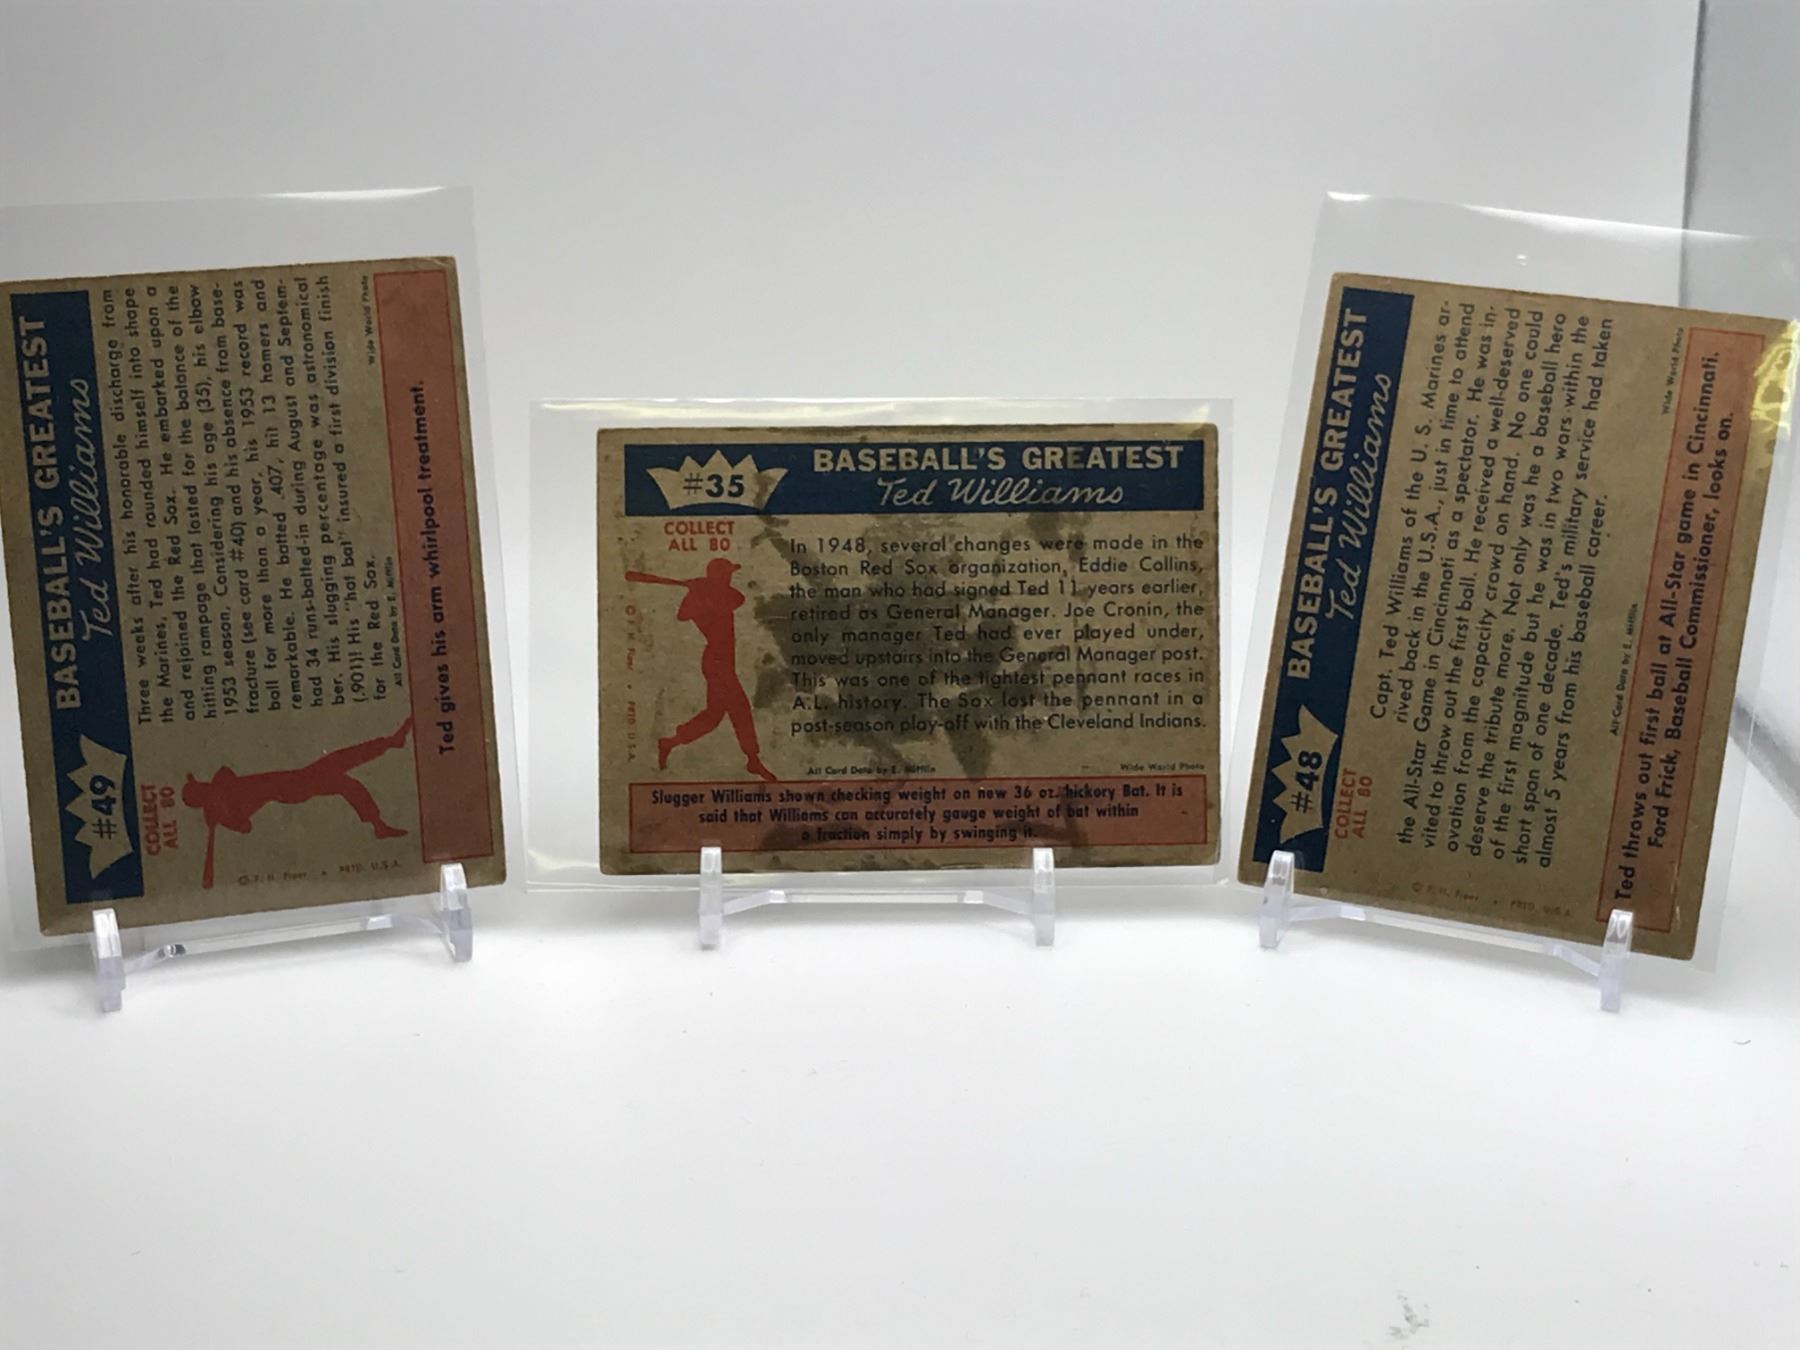 #49
BASEBALL'S GREATEST
Ted Williams
COLLECT
ALL 80
Three weeks after his honorable discharge from
the Marines, Ted had rounded himself into shape
and rejoined the Red Sox. He embarked upon a
hitting rampage that lasted for the balance of the
1953 season. Considering his age (35), his elbow
fracture (see card #40) and his absence from base-
ball for more than a year, his 1953 record was
remarkable. He batted .407, hit 13 homers and
had 34 runs-batted-in during August and Septem-
ber. His slugging percentage was astronomical
(.901)! His "hot bat" insured a first division finish
for the Red Sox.
All Card Data by E. Mifflin
Wide World Photo
© F. H. Fleer • PRTD. U.S.A.
Ted gives his arm whirlpool treatment.
#35
BASEBALL'S GREATEST
Ted Williams
COLLECT
ALL 80
In 1948, several changes were made in the
Boston Red Sox organization, Eddie Collins,
the man who had signed Ted 11 years earlier,
retired as General Manager. Joe Cronin, the
only manager Ted had ever played under,
moved upstairs into the General Manager post.
This was one of the tightest pennant races in
A.L. history. The Sox lost the pennant in a
post-season play-off with the Cleveland Indians.
© F. H. Fleer • PRTD. U.S.A.
All Card Data by E. Mifflin
Wide World Photo
Slugger Williams shown checking weight on new 36 oz. hickory Bat. It is
said that Williams can accurately gauge weight of bat within
a fraction simply by swinging it.
#48
BASEBALL'S GREATEST
Ted Williams
COLLECT
ALL 80
Capt. Ted Williams of the U. S. Marines ar-
rived back in the U.S.A., just in time to attend
the All-Star Game in Cincinnati as a spectator. He was in-
vited to throw out the first ball. He received a well-deserved
ovation from the capacity crowd on hand. No one could
deserve the tribute more. Not only was he a baseball hero
of the first magnitude but he was in two wars within the
short span of one decade. Ted's military service had taken
almost 5 years from his baseball career.
All Card Data by E. Mifflin
Wide World Photo
© F. H. Fleer • PRTD. U.S.A.
Ted throws out first ball at All-Star game in Cincinnati.
Ford Frick, Baseball Commissioner, looks on.